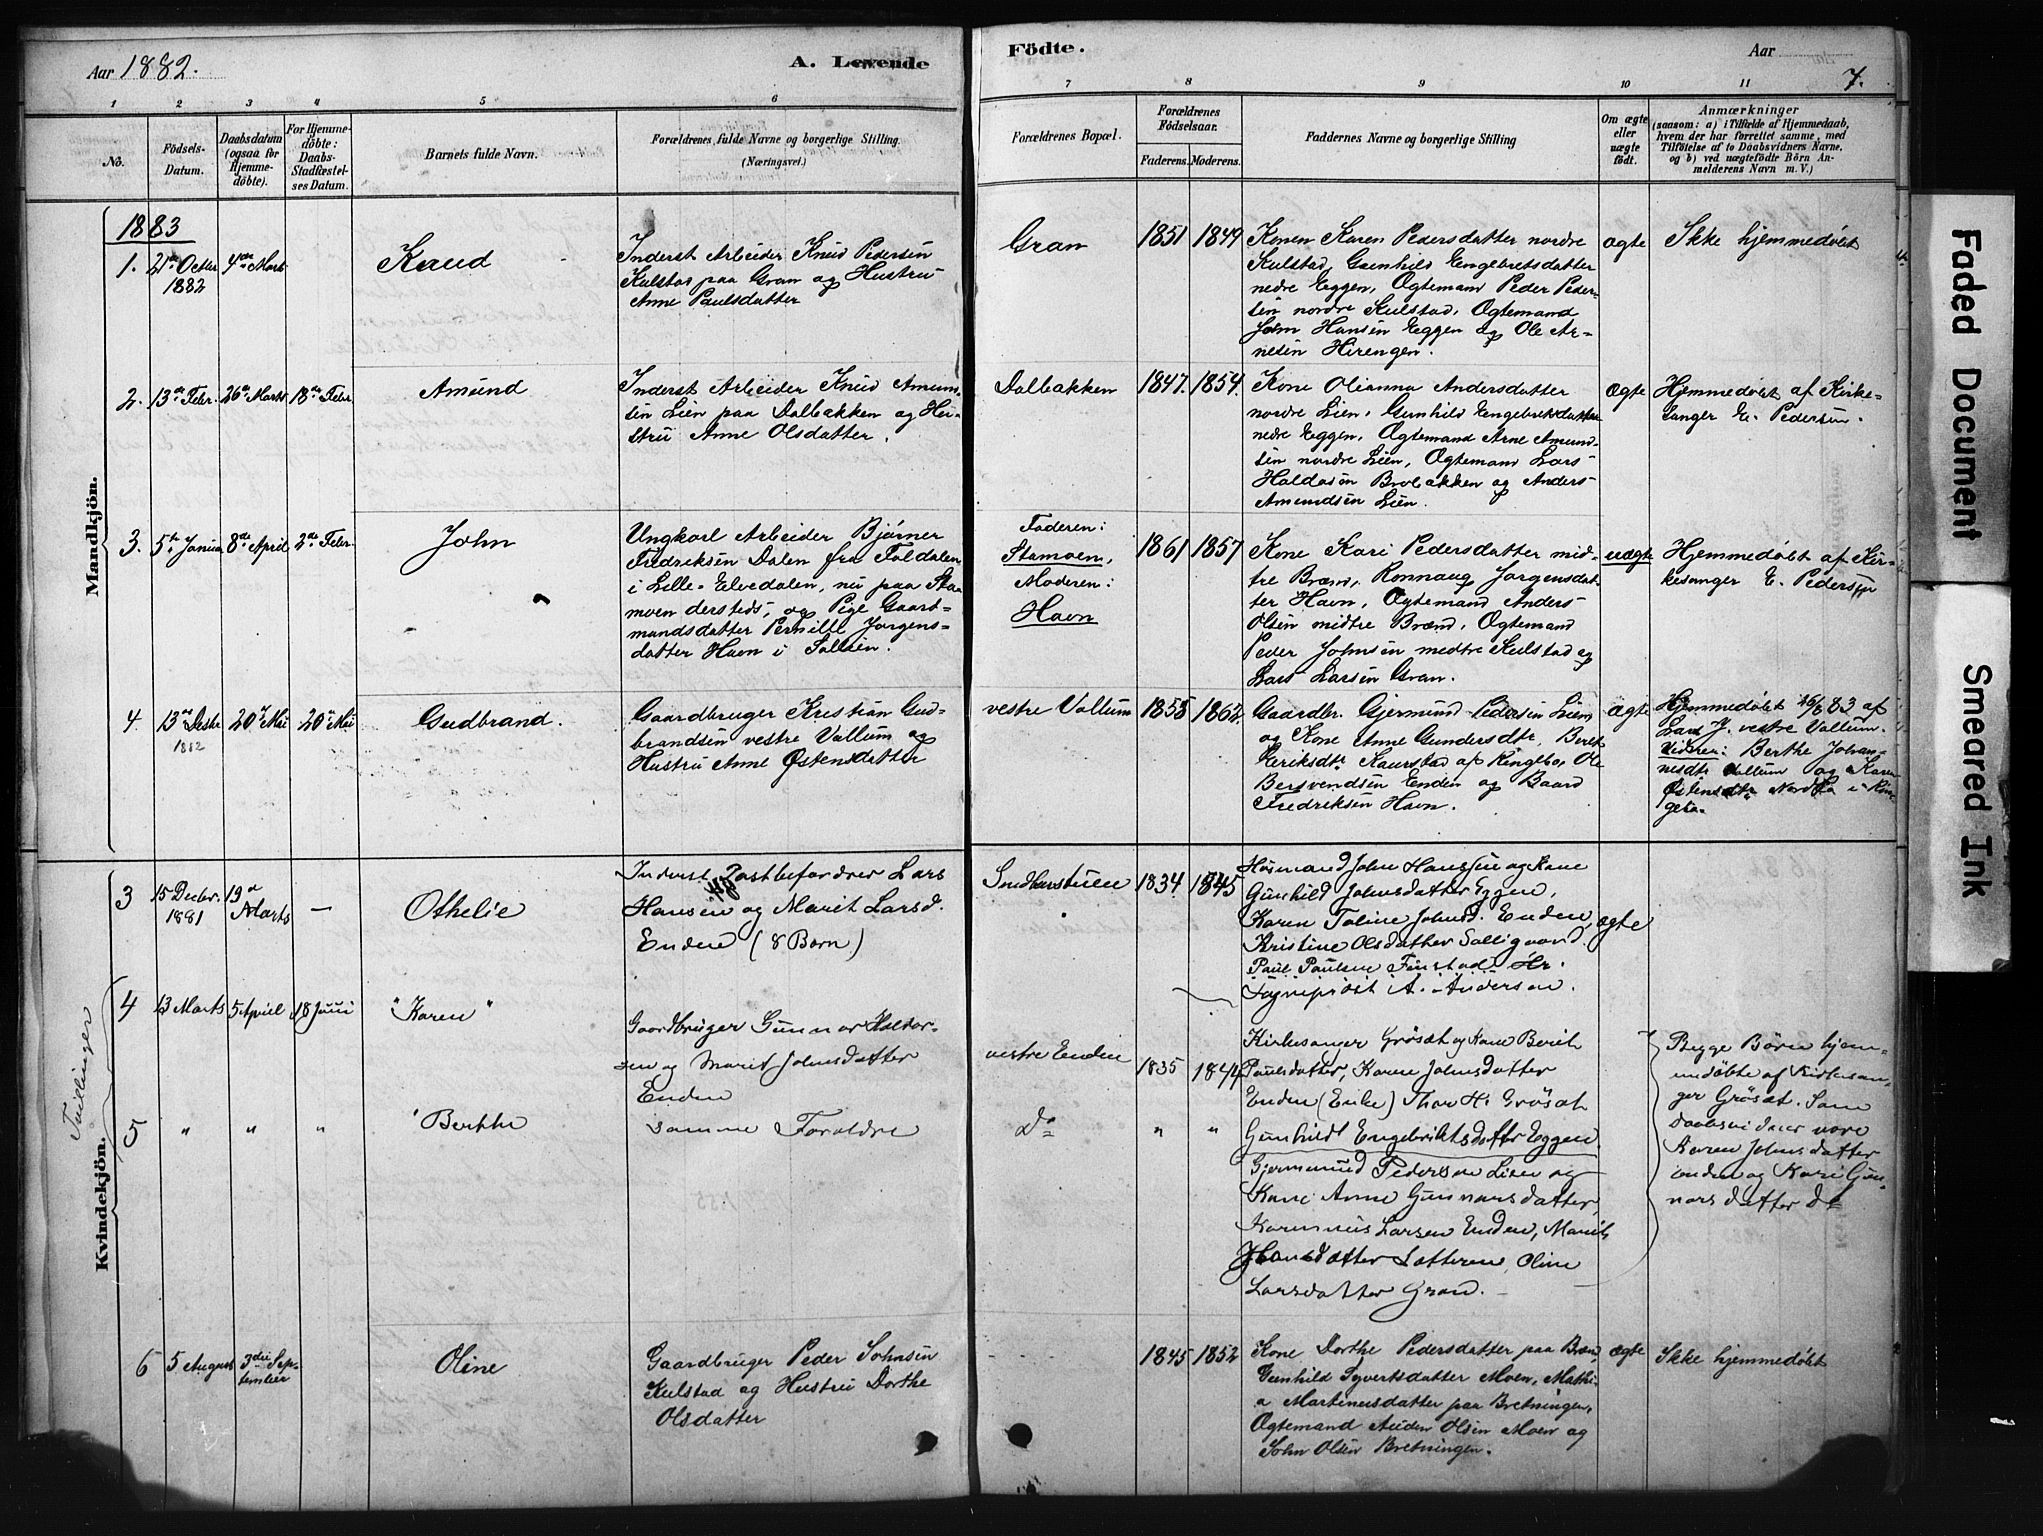 Aar 1882.
A. Levende
Födte.
Aar
7.
1 2 3 4 5 6
7 8 9 10 11
No.
Födsels-Datum.
Daabsdatum (ogsaa for Hjemme-döbte).
For Hjemme-döbte: Daabs-Stadfæstel-ses Datum.
Barnets fulde Navn.
Forældrenes fulde Navne og borgerlige Stilling.
(Næringsvei.)
Forældrenes Bopæl.
Forældrenes Födselsaar.
Faderens. Moderens.
Faddernes Navne og borgerlige Stilling
Om ægte eller uægte födt.
Anmærkninger
(saasom: a) i Tilfælde af Hjemmedaab,
hvem der har forrettet samme, med
Tilföielse af to Daabsvidners Navne,
og b) ved uægtefödte Börn An-
melderens Navn m. V.)
Mandkjön.
1883
1. 21de Octbr 1882
4de Marts
Knud
Inderst Arbeider Knud Pedersen
Kulstad paa Gran og Hustru
Anne Paulsdatter
Gran
1851 1849
Konen Karen Pedersdatter nordre
Kulstad, Gunhild Engebretsdatter
nedre Eggen, Ogtemand Peder Peder-
sen nordre Kulstad, Ogtemand
John Hansen Eggen og Ole Ar-
nesen Hirengen.
ægte
Ikke hjemmedøbt
2. 13de Febr. 26de Marts 18de Febr.
Amund
Inderst Arbeider Knud Amund-
sen Lien paa Dalbakken og Hu-
stru Anne Olsdatter.
Dalbakken
1847. 1854.
Kone Olianna Andersdatter
nordre Lien, Gunhild Engebretsdatter
nedre Eggen, Ogtemand Arne Amund-
sen nordre Lien, Ogtemand Lars
Haldosen Brobakken og Anders
Amundsen Lien.
ægte
Hjemmedøbt af Kirke-
sanger E. Pedersen.
3. 5te Januar 8de April 2den Febr.
John
Ungkarl Arbeider Bjørner
Fredriksen Dalen fra Foldalen
i Lille-Elvedalen, nu paa Sta-
moen dersteds, og Pige Gaard-
mandsdatter Pernille Jørgens-
datter Havn i Sollien.
Faderen:
Stamoen,
Moderen:
Havn
1861 1857
Kone Kari Pedersdatter mid-
tre Brænd, Ronnaug Jørgensdat-
ter Havn, Ogtemand Anders
Olsen midtre Brænd, Ogtemand
Peder Johnsen medtre Kulstad og
Lars Larsen Gran.
uægte
Hjemmedøbt af Kir-
kesanger E. Pedersen
4. 13de Decbr 1882
20de Mai 20de Mai
Gudbrand.
Gaardbruger Kristian Gud-
brandsen vestre Vollum og
Hustru Anne Østensdatter
vestre Vollum
1858 1862
Gaardbr. Gjermund Pedersen Lien
og Kone Anne Gundersdtr, Berit
Eeriksdtr Kaurstad af Ringebo, Ole
Bersvendsen Enden og Baard
Fredriksen Havn.
ægte
Hjemmedøbt 16/1 83 af
Lars J. vestre Vollum.
Vidner: Berthe Johan-
nesdtr Vollum og Karen
Østensdtr Nordlia i Rin-
gebo.
Kvindekjön.
3 15 Decbr. 1881
19de Marts —
Othelie
Inderst Postbefordrer Lars
Hansen og Marit Larsd.
Enden (8 Børn)
Sndkerstuen
1834 1845
Husmand John Hanssen og Kone
Gunhild Johnsdatter Eggen,
Karen Toline Johnsd. Enden,
Kristine Olsdatter Solligaard.
Paul Paulsen Finstad. Hr.
Sogneprest A. Andersen.
ægte
Tvillinger
4 13 Marts 5 April 18 Juni
"Karen"
Gaardbruger Gunnar Haldor-
sen og Marit Johnsdatter
Enden
vestre Enden
1835 1844
Kirkesanger Grøsæt og Kone Berit
Paulsdatter, Karen Johnsdatter
Enden (Enke) Thor H. Grøsæt
Gunhild Engebriktsdatter Eggen
Gjermund Pedersen Lien og
Kone Anne Gunnarsdatter,
Karinius Larsen Enden, Marit
Hansdatter Lotteren, Oline
Larsdatter Gran.
Begge Børn hjem-
medøbte af Kirkesan-
ger Grøsæt. Som
Daabsvidner vare
Karen Johnsdatter
Enden og Kari Gun-
narsdatter do
5 " " "
Berthe
samme Forældre
Do
" "
6 5 August 3die Sep-
tember
Oline
Gaardbruger Peder Johnsen
Kulstad og Hustru Dorthe
Olsdatter
1845 1852
Kone Dorthe Pedersdatter paa Brænd,
Gunhild Syvertsdatter Moen, Mathi-
a Martinusdatter paa Bretningen,
Ogtemand Auden Olsen Moen og
John Olsen Bretningen.
ægte
Ikke hjemmedøbt
Faded Document
Smeared Ink